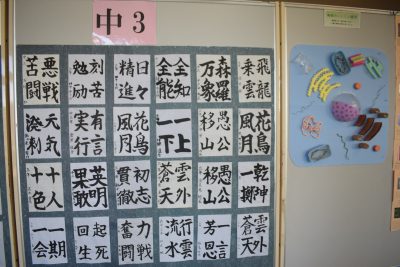 中3
悪戦苦闘
刻苦勉励
日々精進
全知全能
森羅万象
飛龍乗雲
元気溌剌
有言実行
花鳥風月
一上一下
愚公移山
花鳥風月
十人十色
英明果敢
初志貫徹
雲外蒼天
愚公移山
乾坤一擲
一期一会
起死回生
力戦奮闘
行雲流水
一言芳恩
雲外蒼天